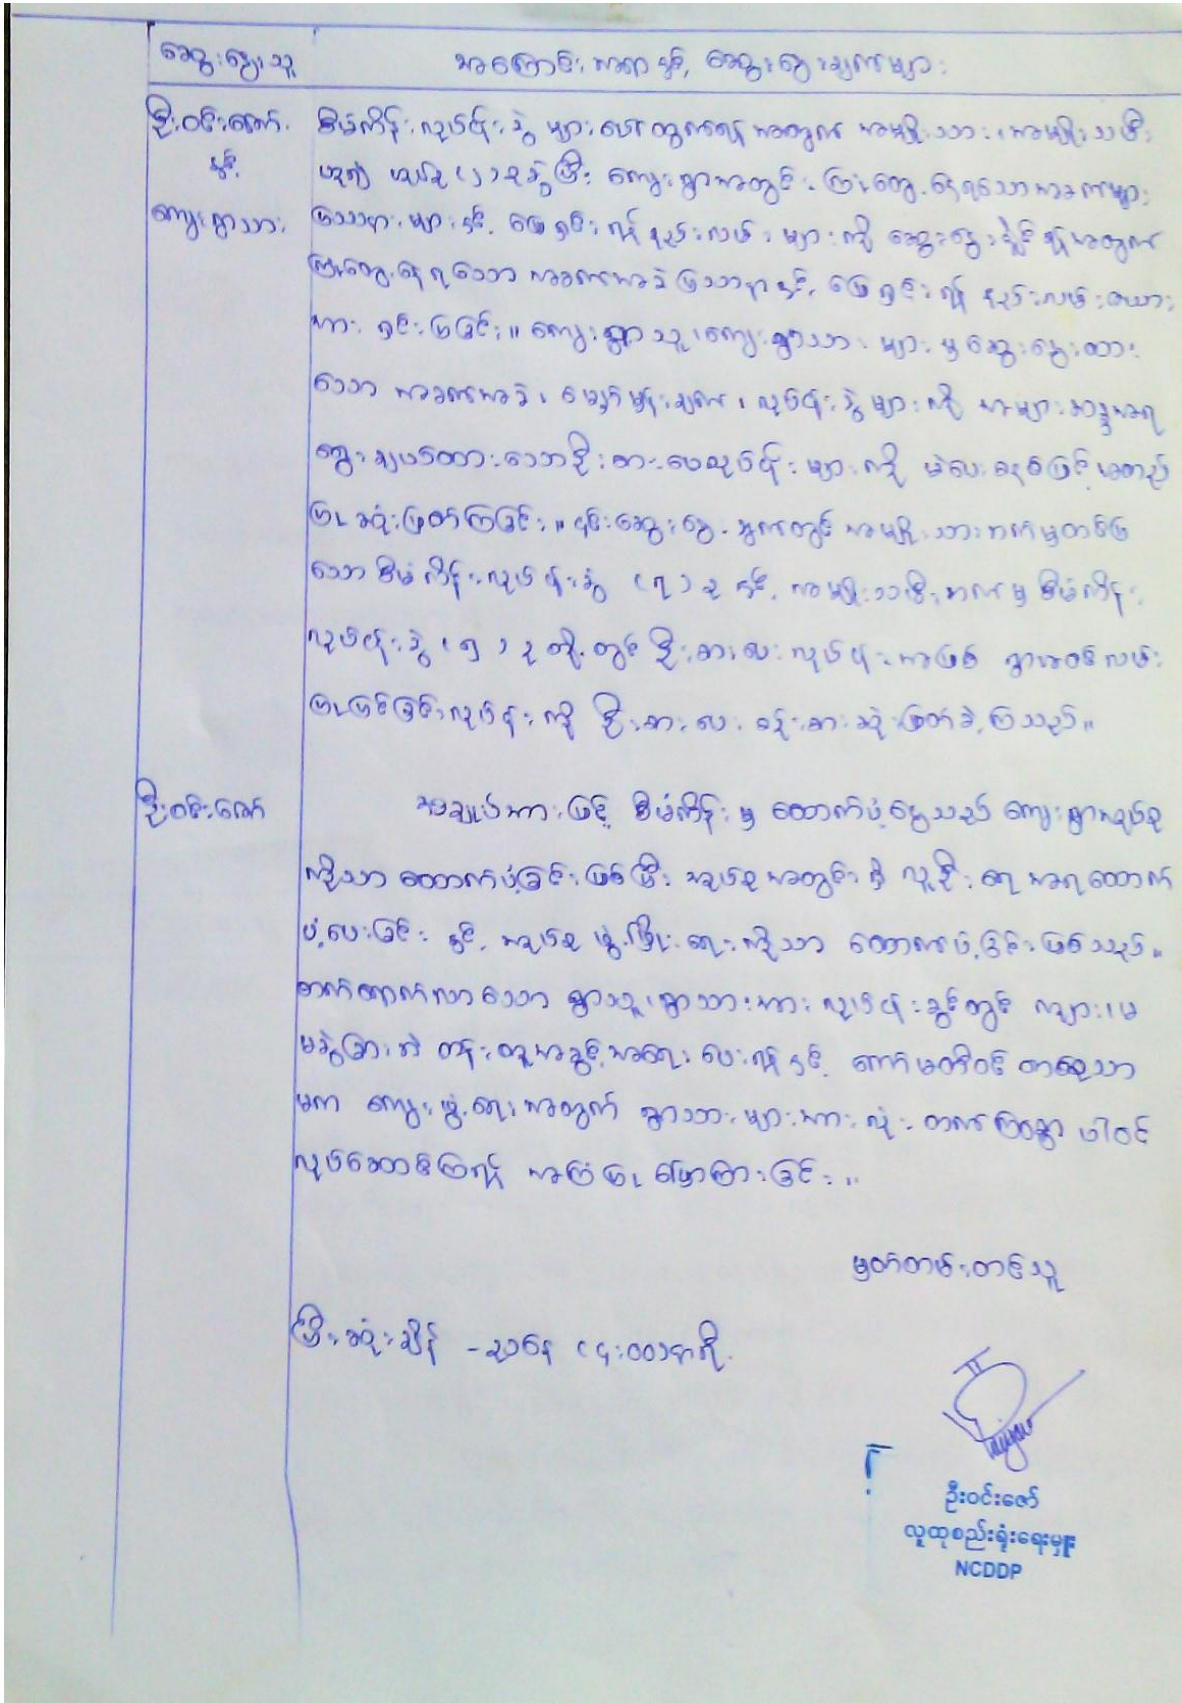 ဆွေးနွေးသူ အကြောင်းအရာနှင့် ဆွေးနွေးချက်များ
ဦးဝင်းဇော် စီမံကိန်းလုပ်ငန်းခွဲများ ဖော်ထုတ်ရန်အတွက် အမျိုးသား၊ အမျိုးသမီး
နှင့် ဟူ၍ အုပ်စု (၂) စုခွဲပြီး ကျေးရွာအတွင်း ကြုံတွေ့နေရသောအခက်များ
ကျေးရွာသား ပြဿနာများနှင့် ဖြေရှင်းရန်နည်းလမ်းများကို ဆွေးနွေးနိုင်ရန်အတွက်
ကြုံတွေ့နေရသော အခက်အခဲပြဿနာနှင့် ဖြေရှင်းရန်နည်းလမ်းဇယား
အား ရှင်းပြခြင်း။ ကျေးရွာသူ၊ ကျေးရွာသားများမှ ဆွေးနွေးထား
သော အခက်အခဲ၊ မျှော်မှန်းချက်၊ လုပ်ငန်းခွဲများကို အများဆန္ဒအရ
ရွေးချယ်ထားသောဦးစားပေးလုပ်ငန်းများကို မဲပေးစနစ်ဖြင့် အတည်
ပြုဆုံးဖြတ်ကြခြင်း။ ၎င်းဆွေးနွေးချက်တွင် အမျိုးသားဘက်မှတင်ပြ
သော စီမံကိန်းလုပ်ငန်းခွဲ (၇) ခုနှင့် အမျိုးသမီးဘက်မှ စီမံကိန်း
လုပ်ငန်းခွဲ (၅) ခုတို့တွင် ဦးစားပေးလုပ်ငန်းအဖြစ် ရွာအဝင်လမ်း
ပြုပြင်ခြင်းလုပ်ငန်းကို ဦးစားပေး စဉ်းစားဆုံးဖြတ်ခဲ့ကြသည်။
ဦးဝင်းဇော် အချုပ်အားဖြင့် စီမံကိန်းမှ ထောက်ပံ့ငွေသည် ကျေးရွာအုပ်စု
ကိုသာ ထောက်ပံ့ခြင်းဖြစ်ပြီး အုပ်စုအတွင်းရှိ လူဦးရေအရထောက်
ပံ့ပေးခြင်းနှင့် အုပ်စုဖွံ့ဖြိုးရေးကိုသာ ထောက်ပံ့ခြင်းဖြစ်သည်။
တက်ရောက်လာသော ရွာသူ၊ ရွာသားအား လုပ်ငန်းခွင်တွင် ကျား၊ မ
မခွဲခြားဘဲ တန်းတူအခွင့်အရေးပေးရန်နှင့် ကော်မတီဝင် တစ်ခုသာ
မက ကျေးရွာဖွံ့ဖြိုးရေးအတွက် ရွာသားများအားလုံး တက်ကြွစွာ ပါဝင်
လုပ်ဆောင်ကြရန် အကြံပြုပြောကြားခြင်း။
မှတ်တမ်းတင်သူ
ပြီးဆုံးချိန် - ညနေ (၄း၀၀) နာရီ
ဦးဝင်းဇော်
လူထုစည်းရုံးရေးမှူး
NCDDP